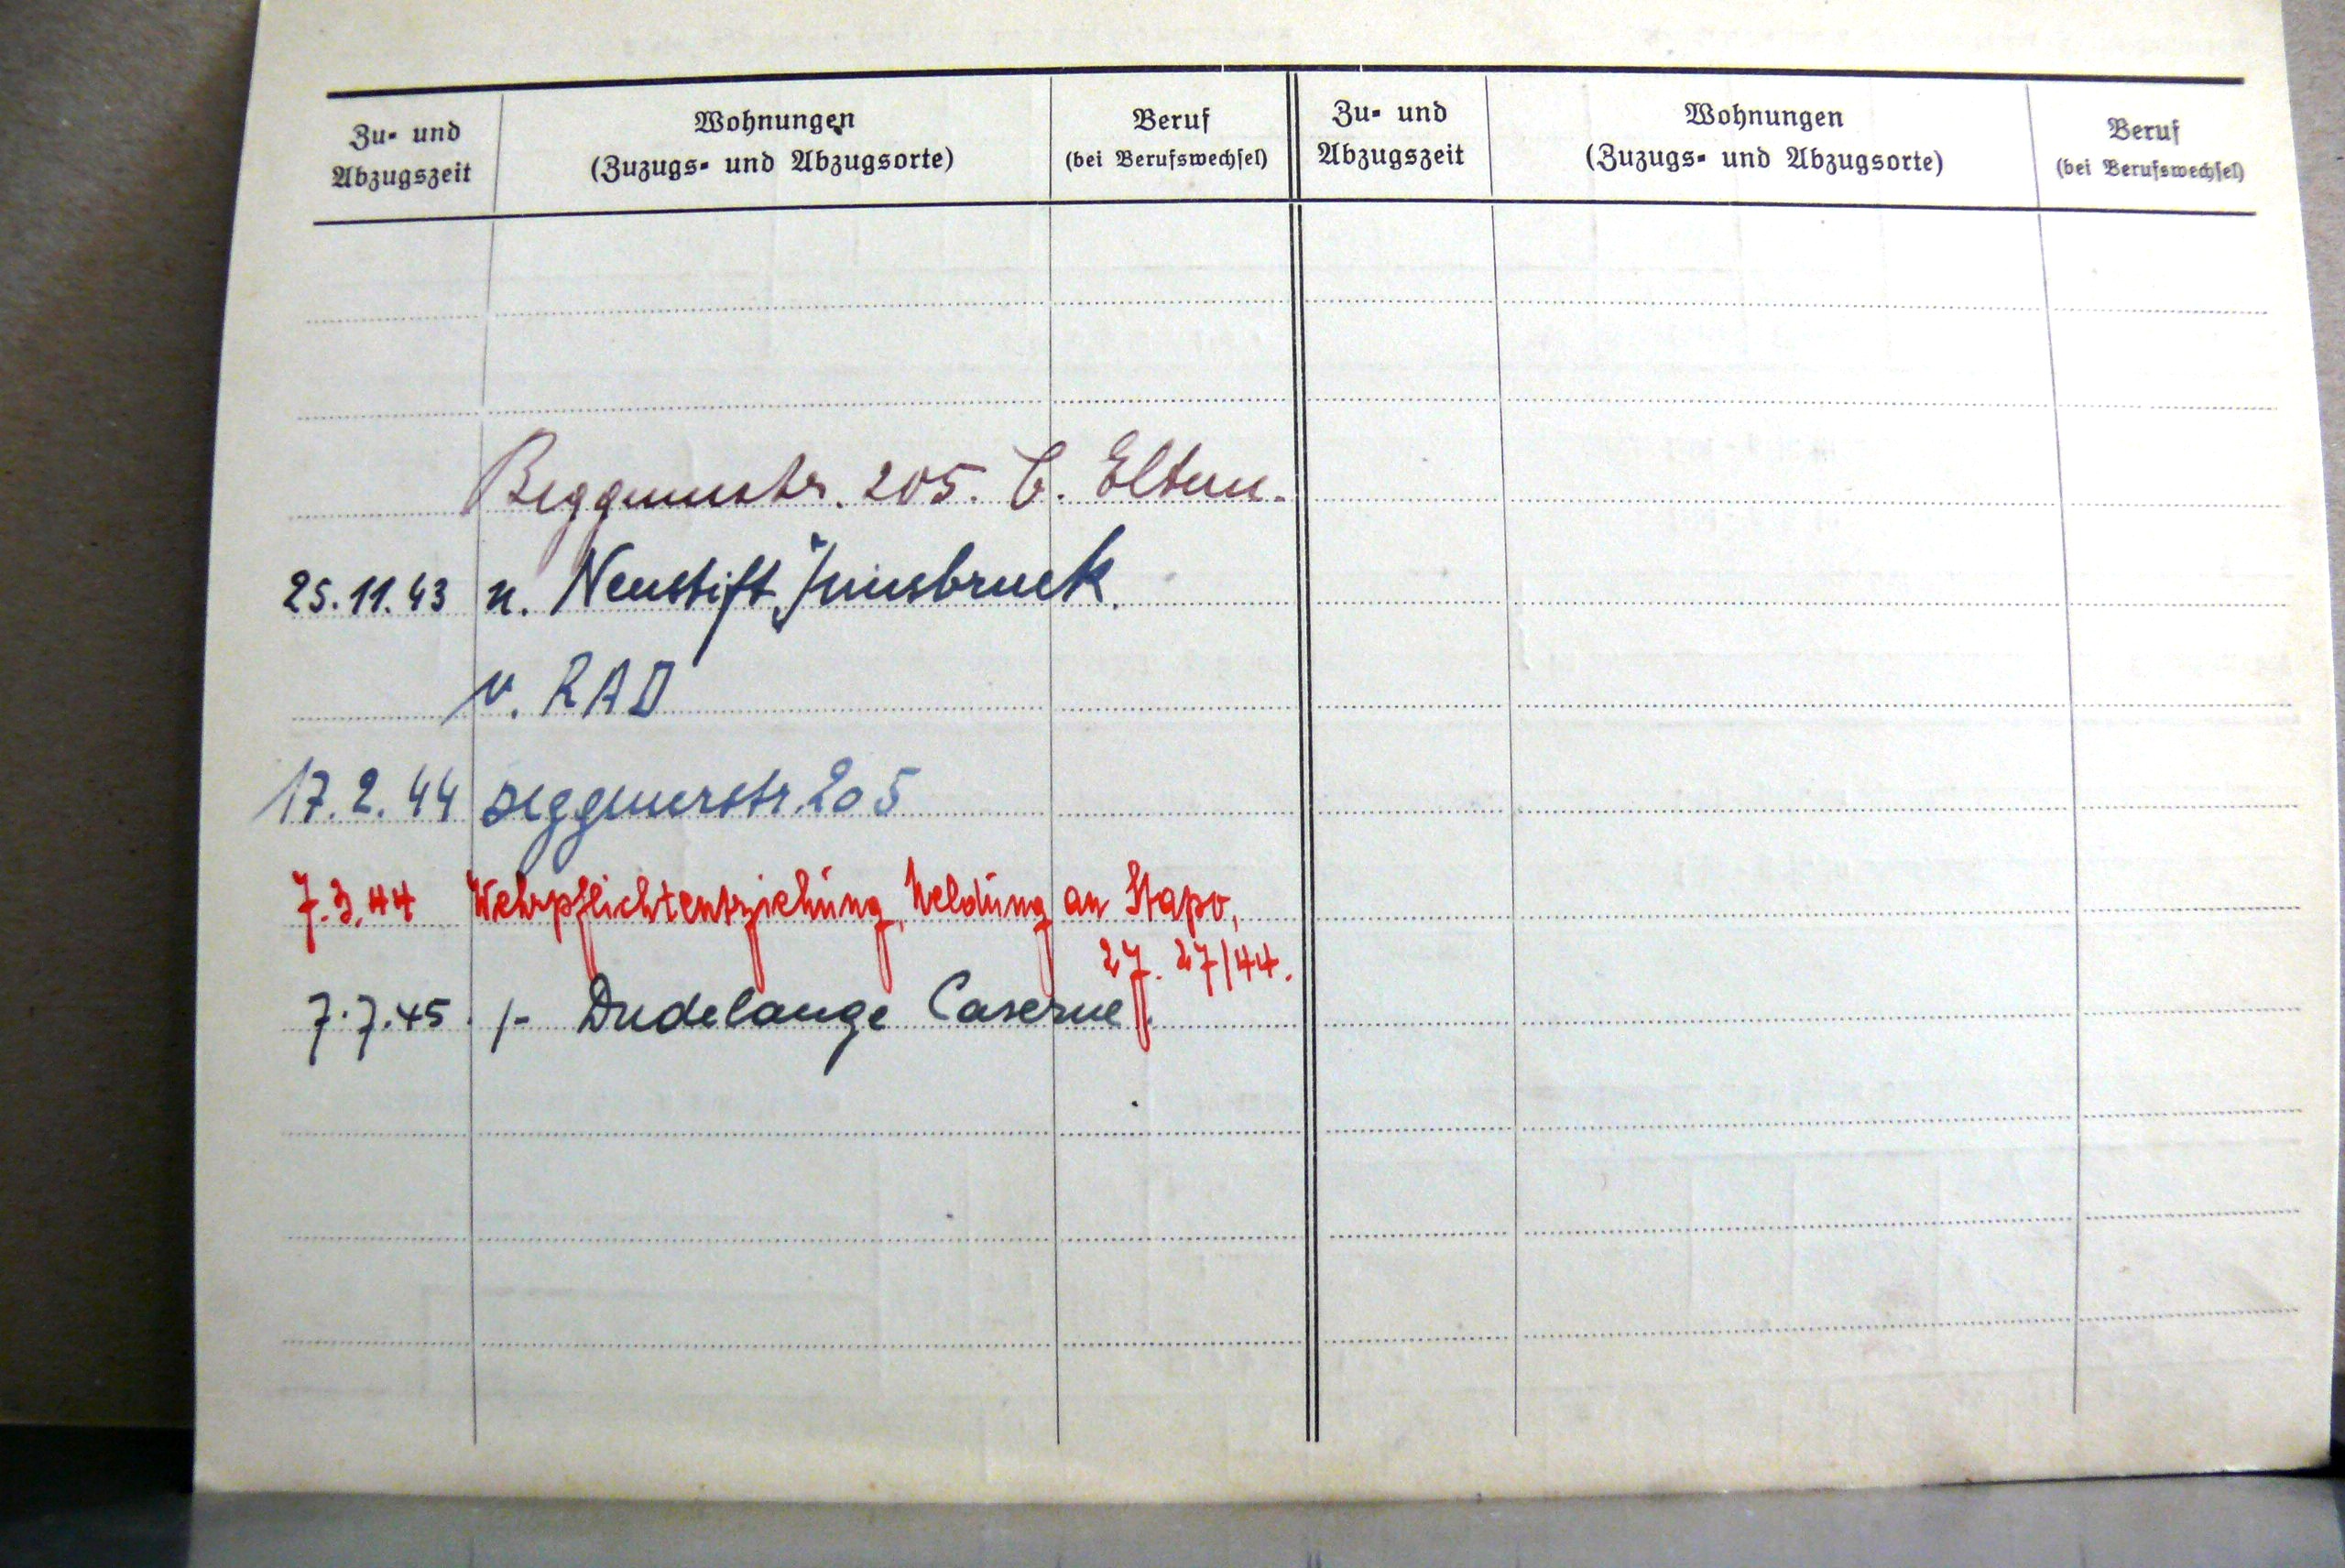 Zu- und Abzugszeit
Wohnungen
(Zuzugs- und Abzugsorte)
Beruf
(bei Berufswechsel)
Zu- und Abzugszeit
Wohnungen
(Zuzugs- und Abzugsorte)
Beruf
(bei Berufswechsel)
Beggenerstr. 205. b. Eltern.
25.11.43 n. Neustift Innsbruck.
v. RAD
17.2.44 Beggenerstr. 205
7.3.44 Wehrpflichtentziehung, Meldung an Stapo,
27. 27/44.
7.7.45. /- Dudelange Caserne.